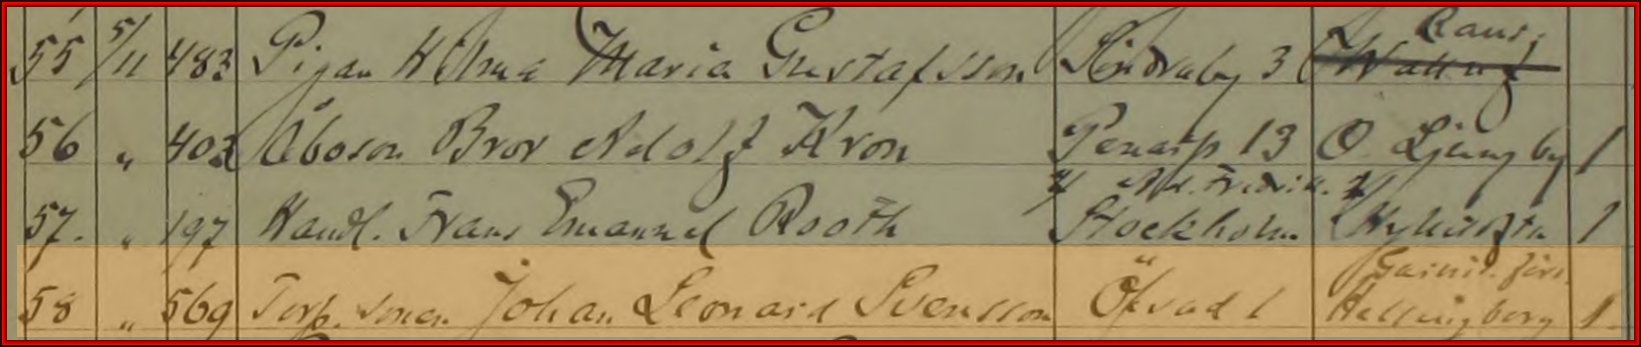 55 5/11 483 Pigan Wilma Maria Gustafsson Söndraby 3 Raus
56 " 402 Åboson Bror Adolf Kron Penarp 13 Ö. Ljungby 1
Ad. Fredrik.
57. " 197 Handl. Frans Emanuel Rooth Stockholm 1
Garnis. förs.
58 " 569 Torp. sonen Johan Leonard Svensson Helsingborg 1